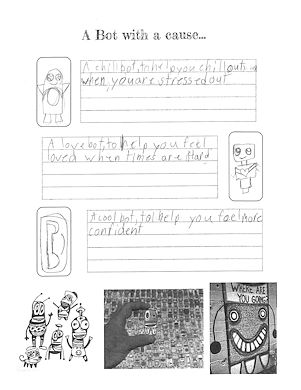 A Bot with a cause...
A chill bot, to help you chill out
when you are stressed out
A love bot, to help you feel
loved when times are Hard
A cool bot, to help you feel more
confident
WHERE ARE
YOU GOING